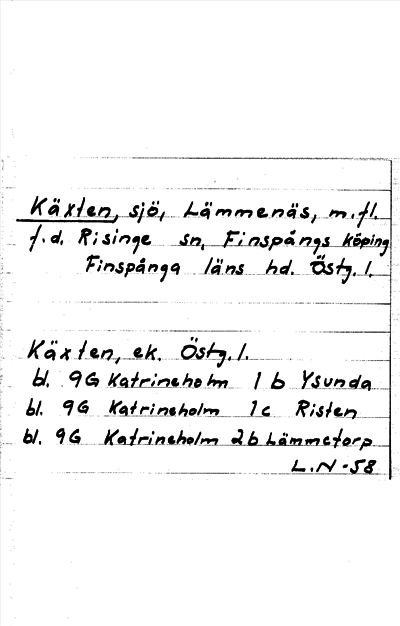 Käxten, sjö, Lämmenäs, m.fl.
f.d. Risinge sn, Finspångs köping
Finspånga läns hd. Östg. l.
Käxten, ek. Östg. l.
bl. 9G Katrineholm 1b Ysunda
bl. 9G Katrineholm 1c Risten
bl. 9G Katrineholm 2b Lämmetorp
L.N -58